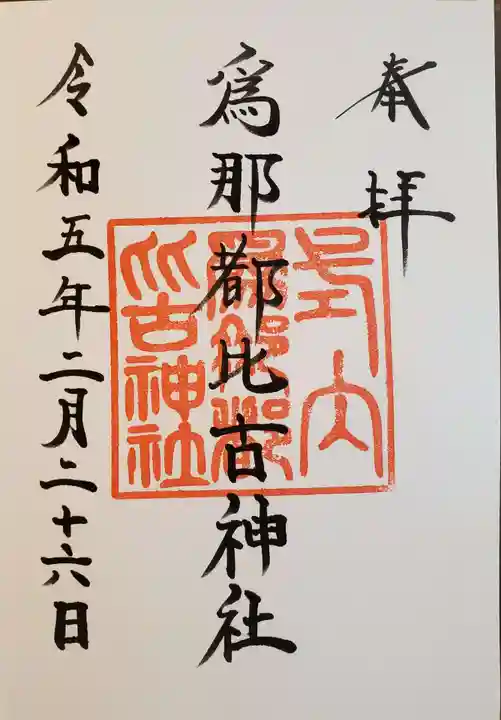 奉拝
爲那都比古神社
式内
爲那都
比古神社
令和五年二月二十六日